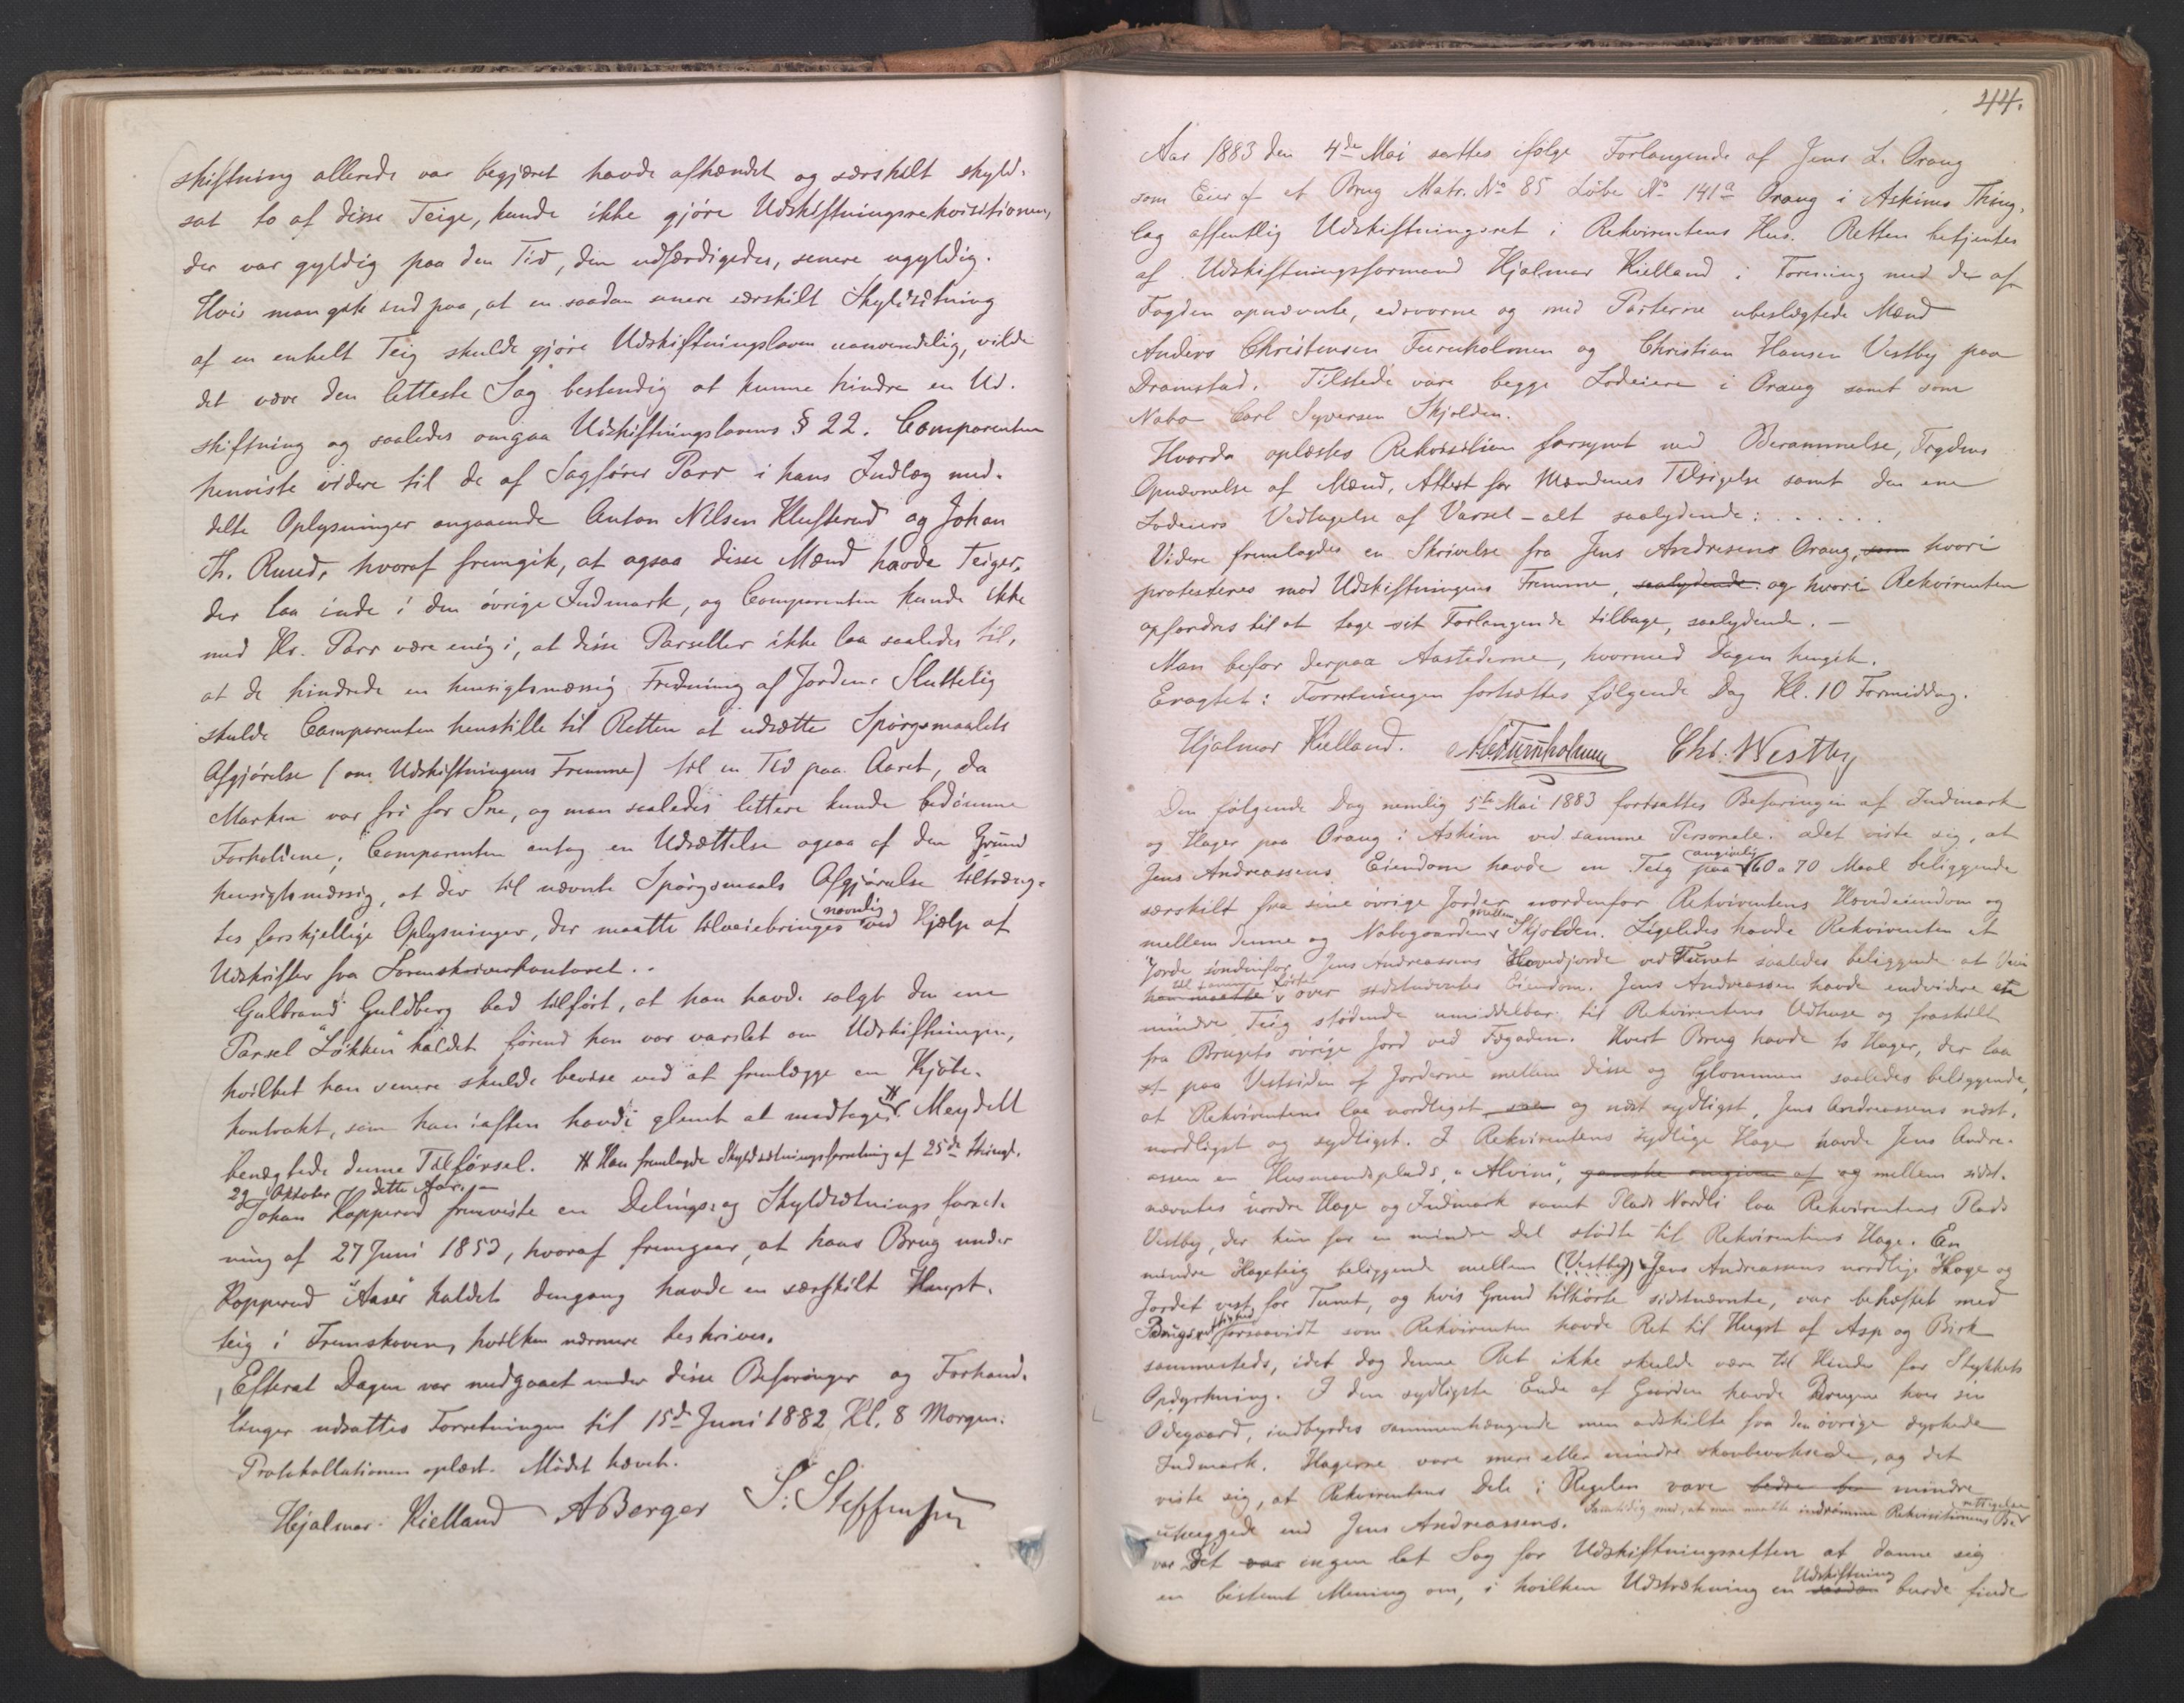 skiftning allerede var begjæret havde afhændet og særskilt skyld-
sat to af disse Teige, kunde ikke gjöre Udskiftningsrekvisitionen,
der var gyldig paa den Tid, den udfærdigedes, senere ugyldig.
Hvis man gik ind paa, at en saadan senere særskilt Skyldsætning
af en enkelt Teig skulde gjöre Udskiftningsloven uanvendelig, vilde
det være den letteste Sag bestendig at kunne hindre en Ud-
skiftning og saaledes omgaa Udskiftningslovens § 22. Comparenten
henviste videre til de af Sagförer Parr i hans Indlæg med-
delte Oplysninger angaaende Anton Nilsen Klufterud og Johan
Th. Ruud, hvoraf fremgik, at ogsaa disse Mænd havde Teiger,
der laa inde i den övrige Indmark, og Comparenten kunde ikke
med Hr. Parr være enig i, at disse Parseller ikke laa saaledes til,
at de hindrede en hensigtsmæssig Fredning af Jorden. Sluttelig
skulde Comparenten henstille til Retten at udsætte Spörgsmaalets
Afgjörelse (om Udskiftningens Fremme) til en Tid paa Aaret, da
Marken var fri for Sne, og man saaledes lettere kunde bedömme
Forholdene; Comparenten antog en Udsættelse ogsaa af den Grund
hensigtsmæssig, at der til nævnte Spörgsmaals Afgjörelse tiltræng-
tes forskjellige Oplysninger, der maatte tilveiebringes navnlig ved Hjælp af
Udskrifter fra Sorenskriverkontoret.
Gulbrand Guldberg bad tilfört, at han havde solgt den ene
Parsel "Løkken" kaldet förend han var varslet om Udskiftningen,
hvilket han senere skulde bevise ved at fremlægge en Kjöbe-
kontrakt, som han iaften havde glemt at medtage. # Meydell
benægtede denne Tilförsel. # Han fremlagde Skyldsætningsforretning af 25de thingl.
29 Oktober dette Aar.
Johan Kopperud fremviste en Delings- og Skyldsætningsforret-
ning af 27 Juni 1853, hvoraf fremgaar, at hans Brug under
Kopperud "Aaser" kaldet dengang havde en særskilt Haugt-
teig i Fremskoven, hvilken nærmere beskrives.
Efterat Dagen var medgaaet under disse Befaringer og Forhand-
linger udsattes Forretningen til 15de Juni 1882 Kl. 8 Morgen.
Protokollationen oplæst. Mödet hævet.
Hjalmar Kielland A Berger S. Steffensen
44.
Aar 1883 den 4de Mai sattes ifölge Forlangende af Jens L. Oraug
som Eier af et Brug Matr. No 85 Löbe No 141a Oraug i Askims Thing-
lag offentlig Udskiftningsret i Rekvirentens Hus. Retten betjentes
af Udskiftningsformand Hjalmar Kielland i Forening med de af
Fogden opnævnte, edsvorne og med Parterne ubeslægtede Mænd
Anders Christensen Furuholmen og Christian Hansen Vestby paa
Dramstad. Tilstede vare begge Lodeiere i Oraug samt som
Nabo Carl Syversen Skjolden.
Hvorda oplæstes Rekvisition forsynet med Berammelse, Fogdens
Opnævnelse af Mænd, Attest for Mændenes Tilsigelse samt den ene
Lodeiers Vedtagelse af Varsel - alt saalydende: . . . . . .
Videre fremlagdes en Skrivelse fra Jens Andresens Oraug, som hvori
protesteres mod Udskiftningens Fremme, saalydende. og hvori Rekvirenten
opfordres til at tage sit Forlangende tilbage, saalydende. -
Man befor derpaa Aastederne, hvormed Dagen hengik.
Eragtet: Forretningen fortsættes fölgende Dag Kl. 10 Formiddag.
Hjalmar Kielland. A. C. Furuholmen Chr. Westby
Den fölgende Dag nemlig 5te Mai 1883 fortsattes Befaringen af Indmark
og Hager paa Oraug i Askim ved samme Personale. Det viste sig, at
Jens Andreassens Eiendom havde en Teig paa angivelig 60 a 70 Maal beliggende
særskilt fra sine övrige Jorder nordenfor Rekvirentens Hovedeiendom og
mellem denne og Nabogaarden Skjolden. Ligeledes havde Rekvirenten et
Jorde söndenfor Jens Andreassens Hovedjorde ved Tunet saaledes beliggende at Veien
til samme förte over sidstnævntes Eiendom. Jens Andreassen havde endvidere en
mindre Teig stödende umiddelbar til Rekvirentens Udhuse og fraskilt
fra Brugets övrige Jord ved Fægaden. Hvert Brug havde to Hager, der laa
paa Vestsiden af Jorderne mellem disse og Glommen saaledes beliggende,
at Rekvirentens laa nordligst og næst sydligst, Jens Andreassens næst-
nordligst og sydligst. I Rekvirentens sydlige Hage havde Jens Andre-
assen en Husmandsplads, "Alvim", ganske omgiven af og mellem sidst-
nævntes nordre Hage og Indmark samt Plads Nordli laa Rekvirentens Plads
Vestby, der kun for en mindre Del stödte til Rekvirentens Hage. En
mindre Hageteig beliggende mellem (Vestby) Jens Andreassens nordlige Hage og
Jordet vest for Tunet, og hvis Grund tilhörte sidstnævnte, var behæftet med
Brugsrettighed forsaavidt som Rekvirenten havde Ret til Hugst af Asp og Birk
sammesteds, idet dog denne Ret ikke skulde være til Hinder for Stykkets
Opdyrkning. I den sydligste Ende af Gaarden havde Brugene hver sin
Ödegaard, indbyrdes sammenhængende men adskilte fra den övrige dyrkede
Indmark. Hagerne vare mere eller mindre skovbevoksede, og det
viste sig, at Rekvirentens Dele i Regelen vare mindre
uthuggede end Jens Andreassens. Samtidig med, at man maatte indrömme Rekvisitionens Berettigelse
var Det var ingen let Sag for Udskiftningsretten at danne sig
en bestemt Mening om, i hvilken Udstrækning en saadan Udskiftning burde finde